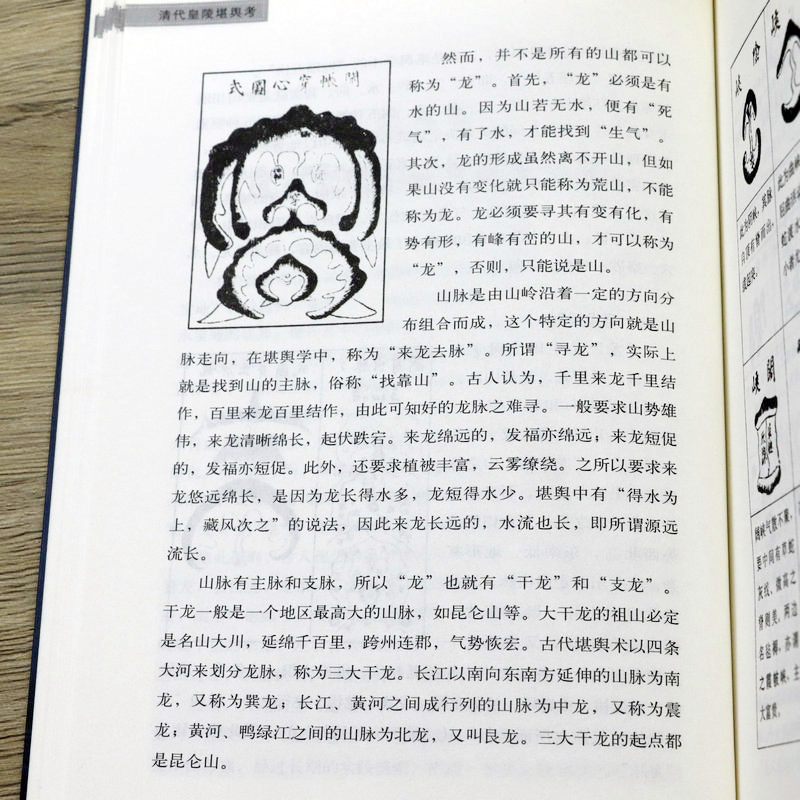 清代皇陵堪舆考
開帐穿心圖式
然而，并不是所有的山都可以
称为“龙”。首先，“龙”必须是有
水的山。因为山若无水，便有“死
气”，有了水，才能找到“生气”。
其次，龙的形成虽然离不开山，但如
果山没有变化就只能称为荒山，不能
称为龙。龙必须要寻其有变有化，有
势有形，有峰有峦的山，才可以称为
“龙”，否则，只能说是山。
山脉是由山岭沿着一定的方向分
布组合而成，这个特定的方向就是山
脉走向，在堪舆学中，称为“来龙去脉”。所谓“寻龙”，实际上
就是找到山的主脉，俗称“找靠山”。古人认为，千里来龙千里结
作，百里来龙百里结作，由此可知好的龙脉之难寻。一般要求山势雄
伟，来龙清晰绵长，起伏跌宕。来龙绵远的，发福亦绵远；来龙短促
的，发福亦短促。此外，还要求植被丰富，云雾缭绕。之所以要求来
龙悠远绵长，是因为龙长得水多，龙短得水少。堪舆中有“得水为
上，藏风次之”的说法，因此来龙长远的，水流也长，即所谓源远
流长。
山脉有主脉和支脉，所以“龙”也就有“干龙”和“支龙”。
干龙一般是一个地区最高大的山脉，如昆仑山等。大干龙的祖山必定
是名山大川，延绵千百里，跨州连郡，气势恢宏。古代堪舆术以四条
大河来划分龙脉，称为三大干龙。长江以南向东南方延伸的山脉为南
龙，又称为巽龙；长江、黄河之间成行列的山脉为中龙，又称为震
龙；黄河、鸭绿江之间的山脉为北龙，又叫艮龙。三大干龙的起点都
是昆仑山。
此为
小
闊峡
阔峡气散不聚，
要中间有草蛇
灰线、微高之
脊则美，两边
大富贵。